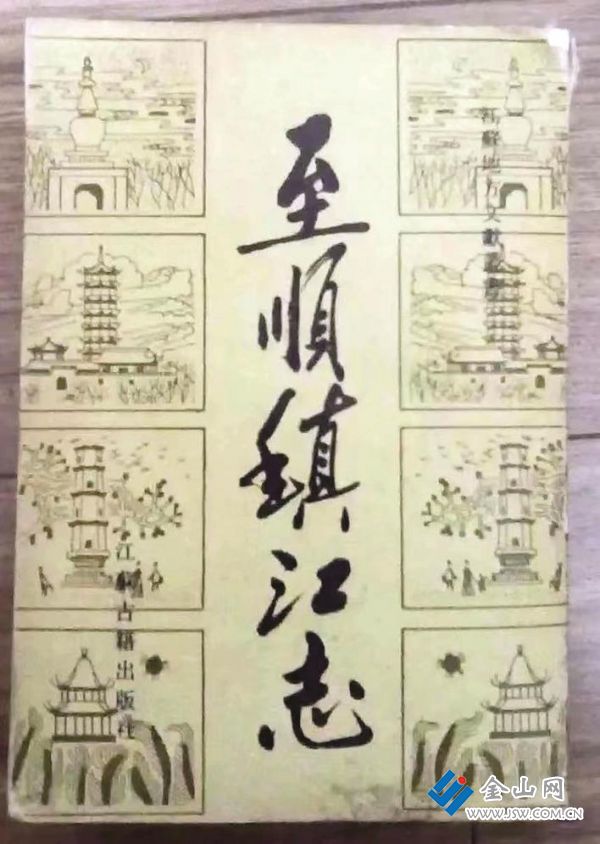 江蘇地方文獻叢書
至順鎮江志
江蘇古籍出版社
金山网
www.JSW.COM.CN